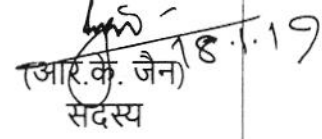 18.1.19
(आर.के. जैन)
सदस्य